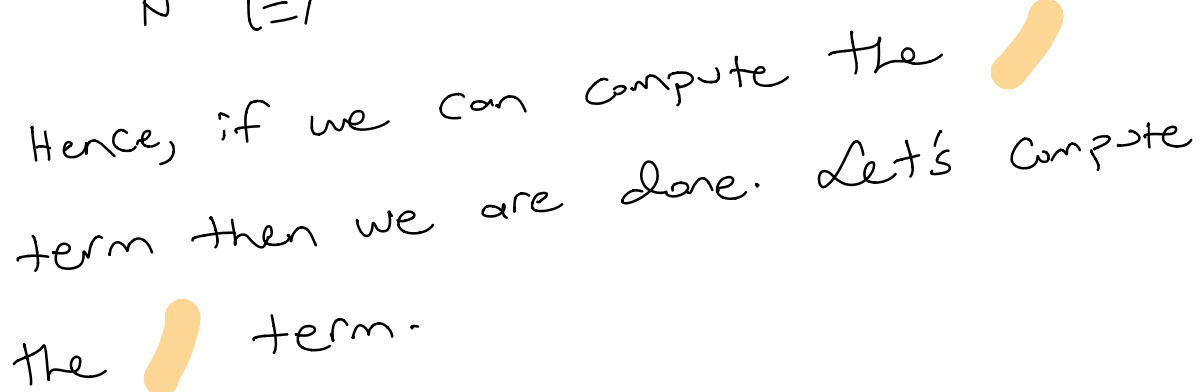 N i=1
Hence, if we can compute the
term then we are done. Let's compute
the term.